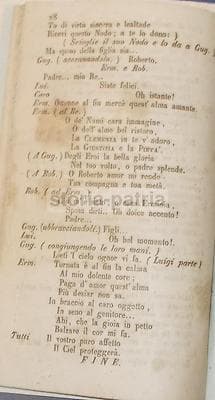 28
Tu di virtù sincera e lealtade
Ricevi questo Nodo; a te lo dono: )
( Scioglie il suo Nodo e lo dà a Gug.
Ma sposo della figlia sia...
Gug. ( accennandola. ) Roberto.
Erm. e Rob.
Padre... mio Re..
Lui. Siate felici.
Caro Oh istante!
Erm. Ottenne al fin mercè quest'alma amante.
Erm. ( al Re.)
O de' Numi cara immagine,
O dell'alme bel ristoro,
La Clemenza in te adoro,
La Giustizia e la Pietà.
( A Gug.) Degli Eroi la bella gloria
Nel tuo volto, o padre splende.
( A Rob. ) O Roberto amor mi rende
Tua compagna e tua metà.
Rob. ( ad Erm.
storia patria
Sposa dirti.. Oh dolce accento!
Padre..
Gug. (abbracciandoli) Figli..
Lui. Oh bel momento!.
Gug. ( congiungendo le loro mani. )
Lieti l'cielo ognor vi fa. ( Luigi parte )
Erm. Tornata è al fin la calma
Al mio dolente core;
Paga d'amor quest'alma
Più desiar non sa.
In braccio al caro oggetto,
In seno al genitore...
Ahi, che la gioia in petto
Balzare il cor mi fa.
Tutti Il vostro puro affetto
Il Ciel proteggerà.
FINE.